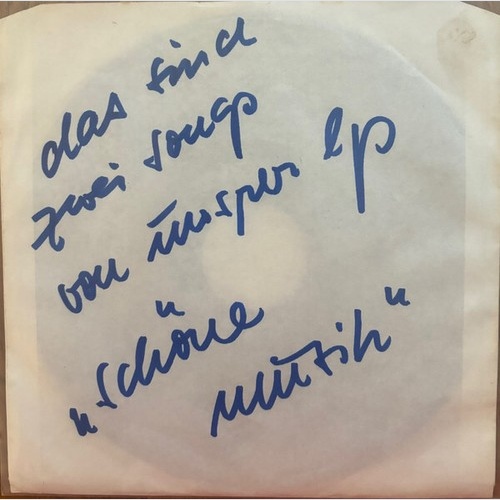 das sind
zwei songs
von unsrer lp
„schöne
musik"